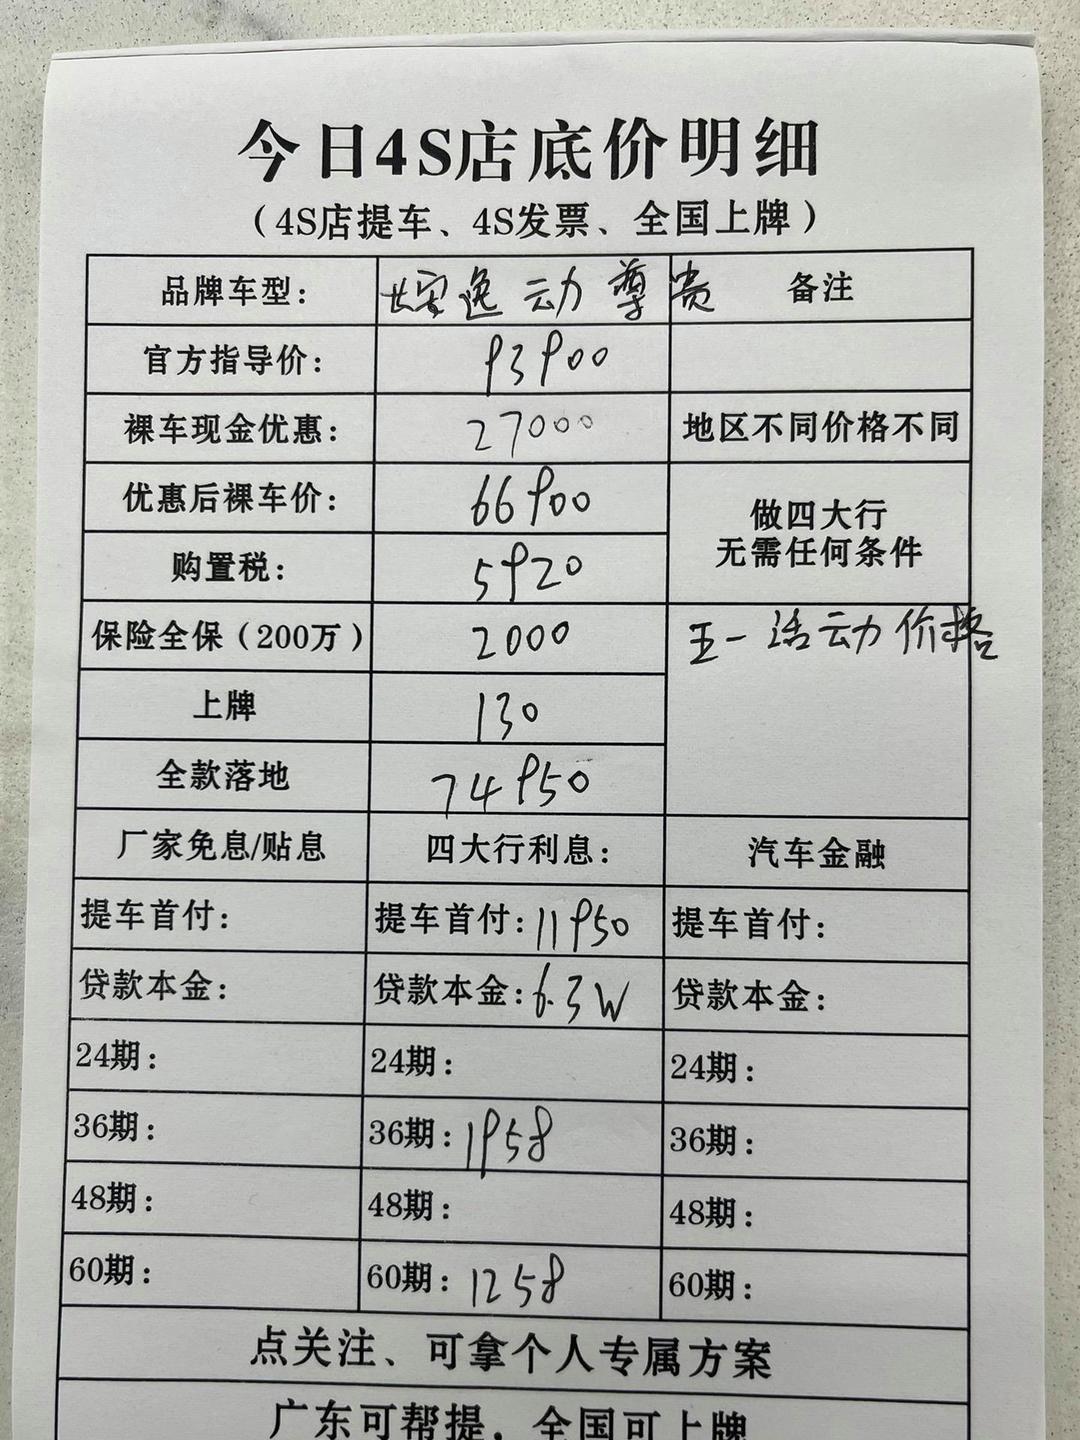 今日4S店底价明细
（4S店提车、4S发票、全国上牌）
品牌车型： 长安逸动尊贵 备注
官方指导价： 93900
裸车现金优惠： 27000 地区不同价格不同
优惠后裸车价： 66900 做四大行
无需任何条件
购置税： 5920
保险全保（200万） 2000 五一活动价格
上牌 130
全款落地 74950
厂家免息/贴息 四大行利息： 汽车金融
提车首付： 提车首付：11950 提车首付：
贷款本金： 贷款本金：6.3W 贷款本金：
24期： 24期： 24期：
36期： 36期：1958 36期：
48期： 48期： 48期：
60期： 60期：1258 60期：
点关注、可拿个人专属方案
广东可帮提，全国可上牌